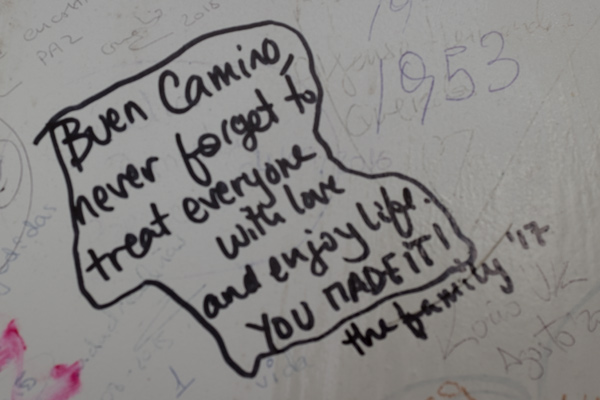 Buen Camino,
never forget to
treat everyone
with love
and enjoy life.
YOU MADE IT!
the family '17
1953
PAZ
2016
Agosto